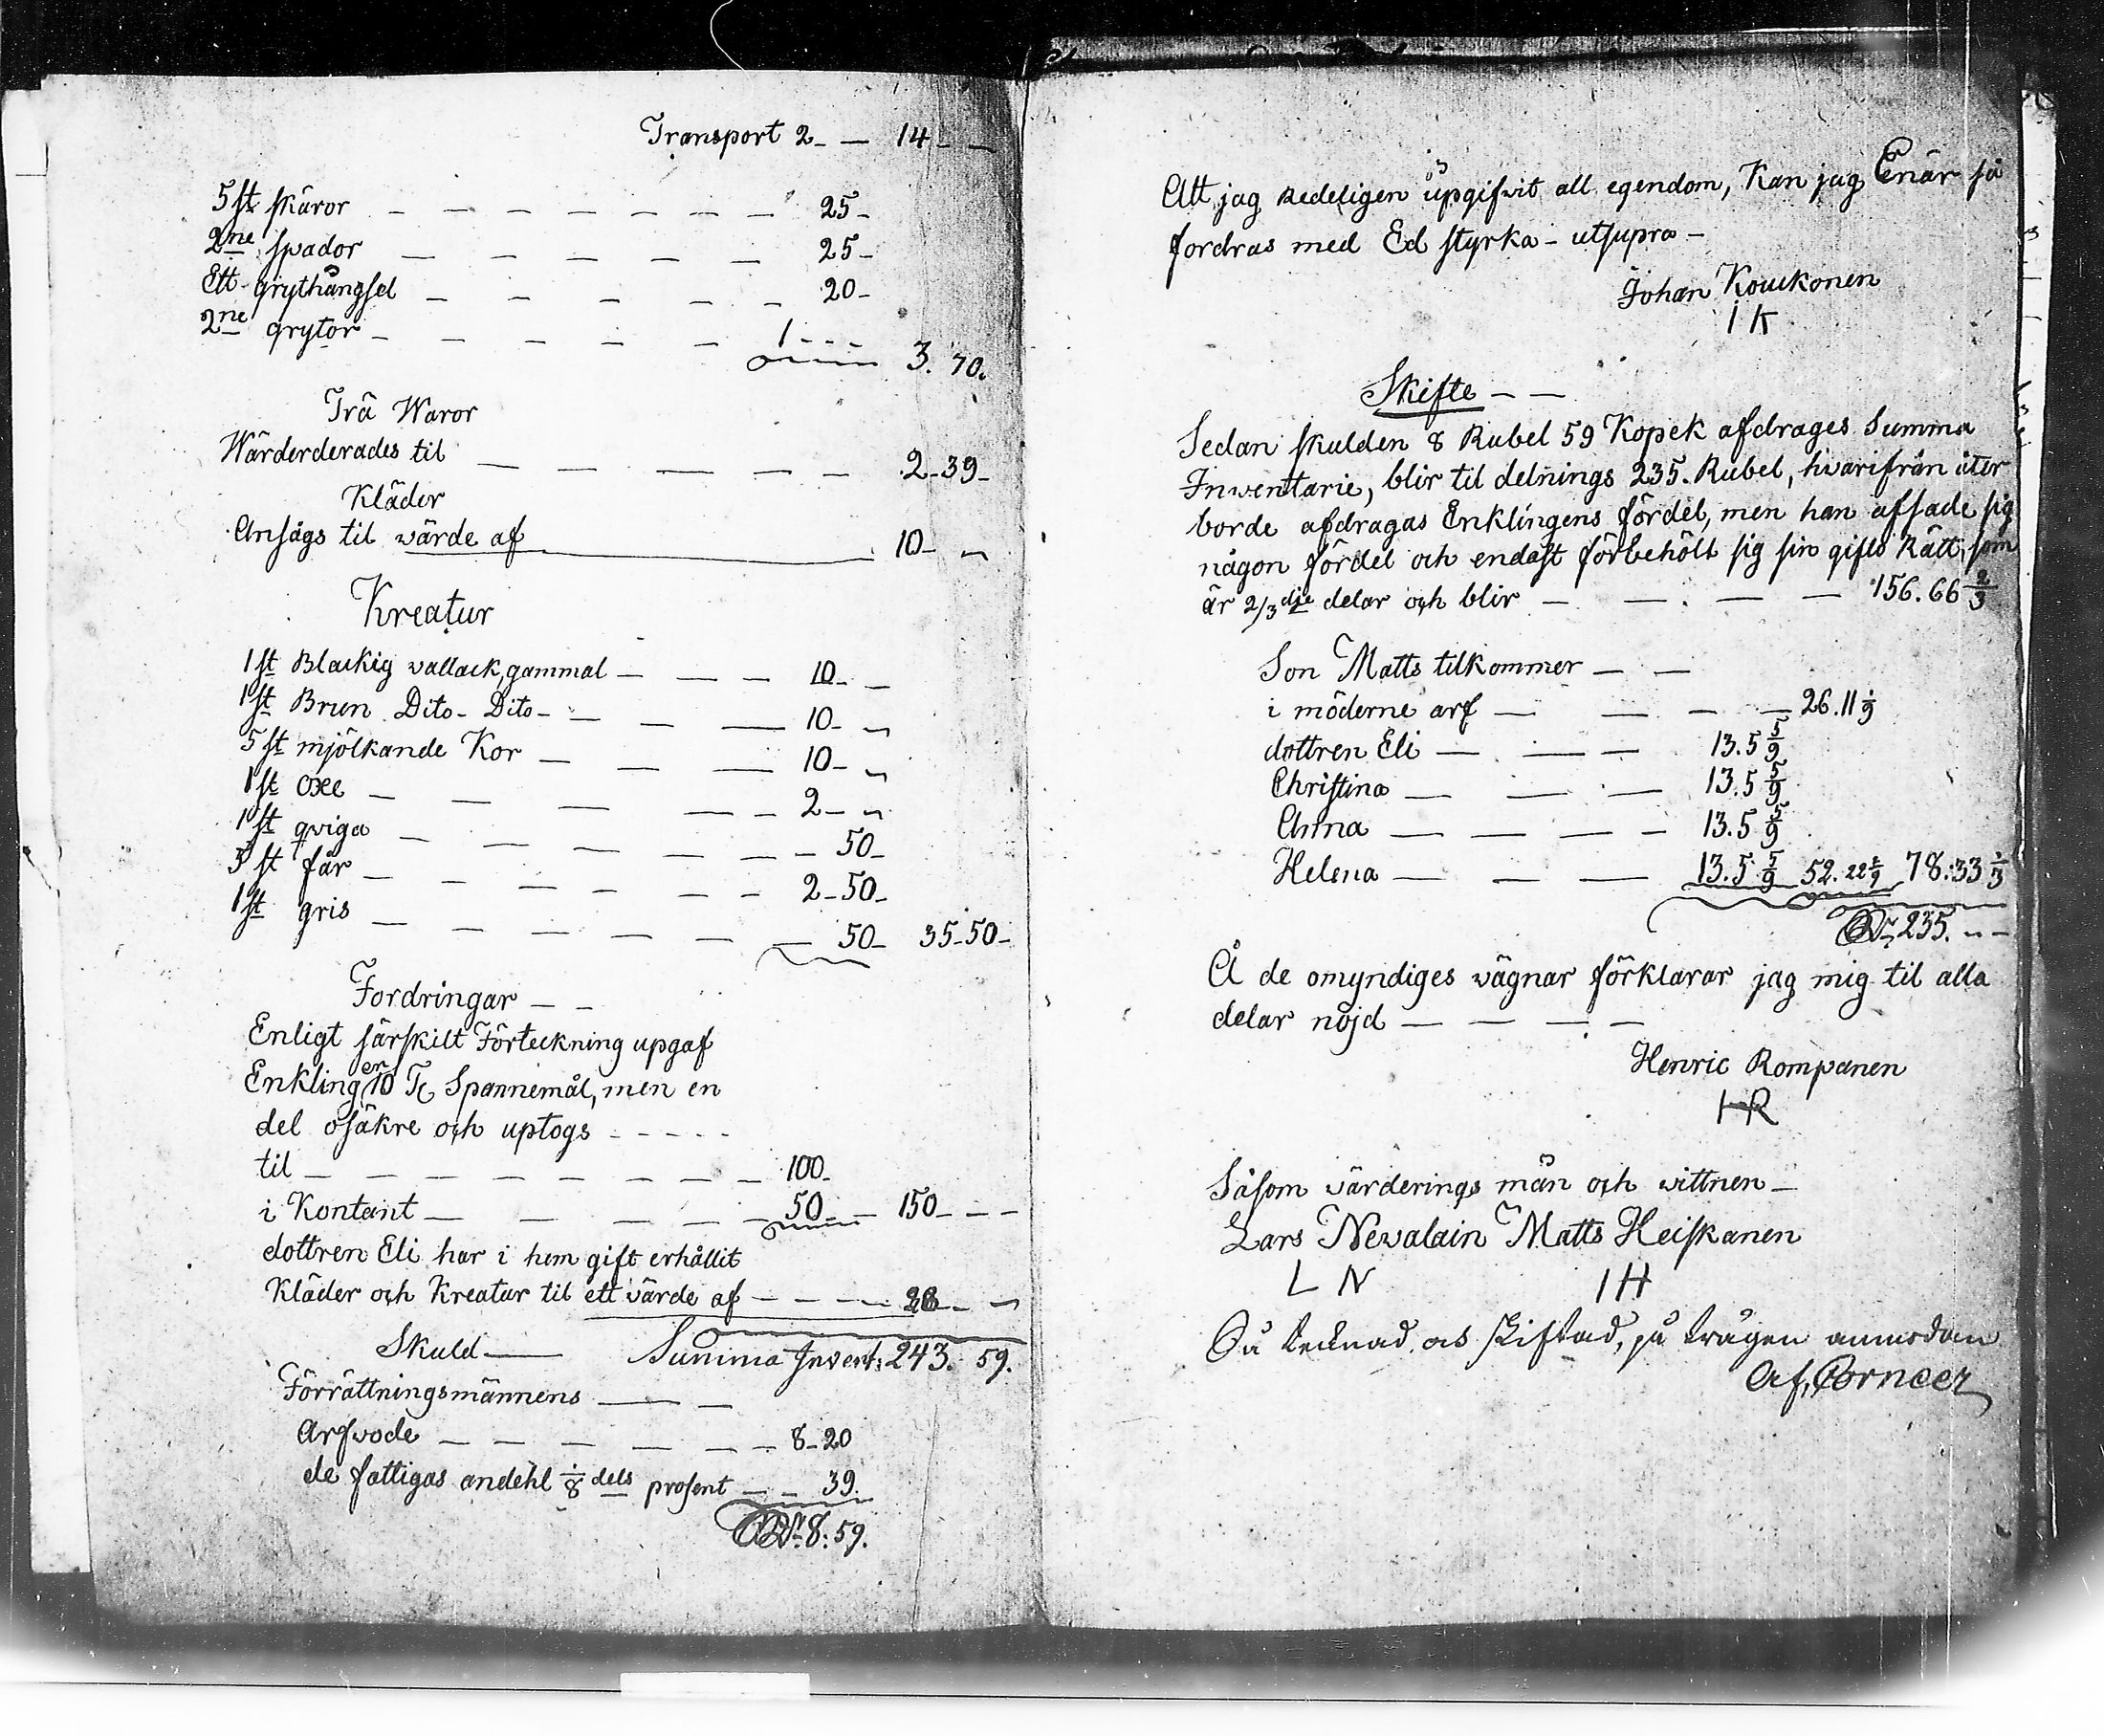 Transport 2 — 14 — —
5 st skäror — — — — — — — 25 —
2ne spador — — — — — 25 —
Ett grythängsel — — — — — 20 —
2ne grytor — — — — — 1 - - - 3. 70.
Trä Waror
Wärderderades til — — — — — 2 - 39 -
Kläder
Ansågs til wärde af — 10 — —
Kreatur
1 st Blackig vallack, gammal — — — 10 — —
1 st Brun Dito - Dito - — — — 10 — —
5 st mjölkande Kor — — — 10 — —
1 st oxe — — — — — 2 — —
1 st qviga — — — — — — 50 —
5 st får — — — — — — 2 - 50 -
1 st gris — — — — — — 50 - 35 - 50 -
Fordringar — —
Enligt särskilt Förteckning upgaf
Enklingen 10 Tr Spannemål, men en
del osäkre och uptogs - - - - -
til — — — — — — — — 100 -
i Kontant — — — — — 50 — — 150 — — —
dottren Eli har i hem gift erhållit
Kläder och Kreatur til ett värde af — — — — 28 — —
Skuld — Summa Invent: 243. 59.
Förrättningsmännens — —
Arfvode — — — — — — 8 - 20
de fattigas andehl 1/8 dels prosent — — 39.
8: 59.
Att jag Redeligen upgifwit all egendom, Kan jag Enär så
fordras med Ed styrka - utsupra -
Johan Kouckonen
I K
Skifte — —
Sedan skulden 8 Rubel 59 Kopek afdrages Summa
Inwentarie, blir til delnings 235. Rubel, hvarifrån åter
borde afdragas Enklingens fördel, men han afsade sig
någon fördel och endast förbehölt sig sin gifto Rätt, som
är 2/3 dje delar och blir — — — — 156. 66 2/3
Son Matts tilkommer — —
i möderne arf — — — — 26. 11 1/9
dottren Eli — — — 13. 5 5/9
Christina — — — 13. 5 5/9
Anna — — — — 13. 5 5/9
Helena — — — 13. 5 5/9 52. 22 2/9 78: 33 1/3
235. — —
Å de omyndiges vägnar förklarar jag mig til alla
delar nöjd — — — —
Henric Rompanen
H R
Såsom värderings män och vittnen —
Lars Nevalain Matts Heiskanen
L N I H
Så Skiftad, på
Af,